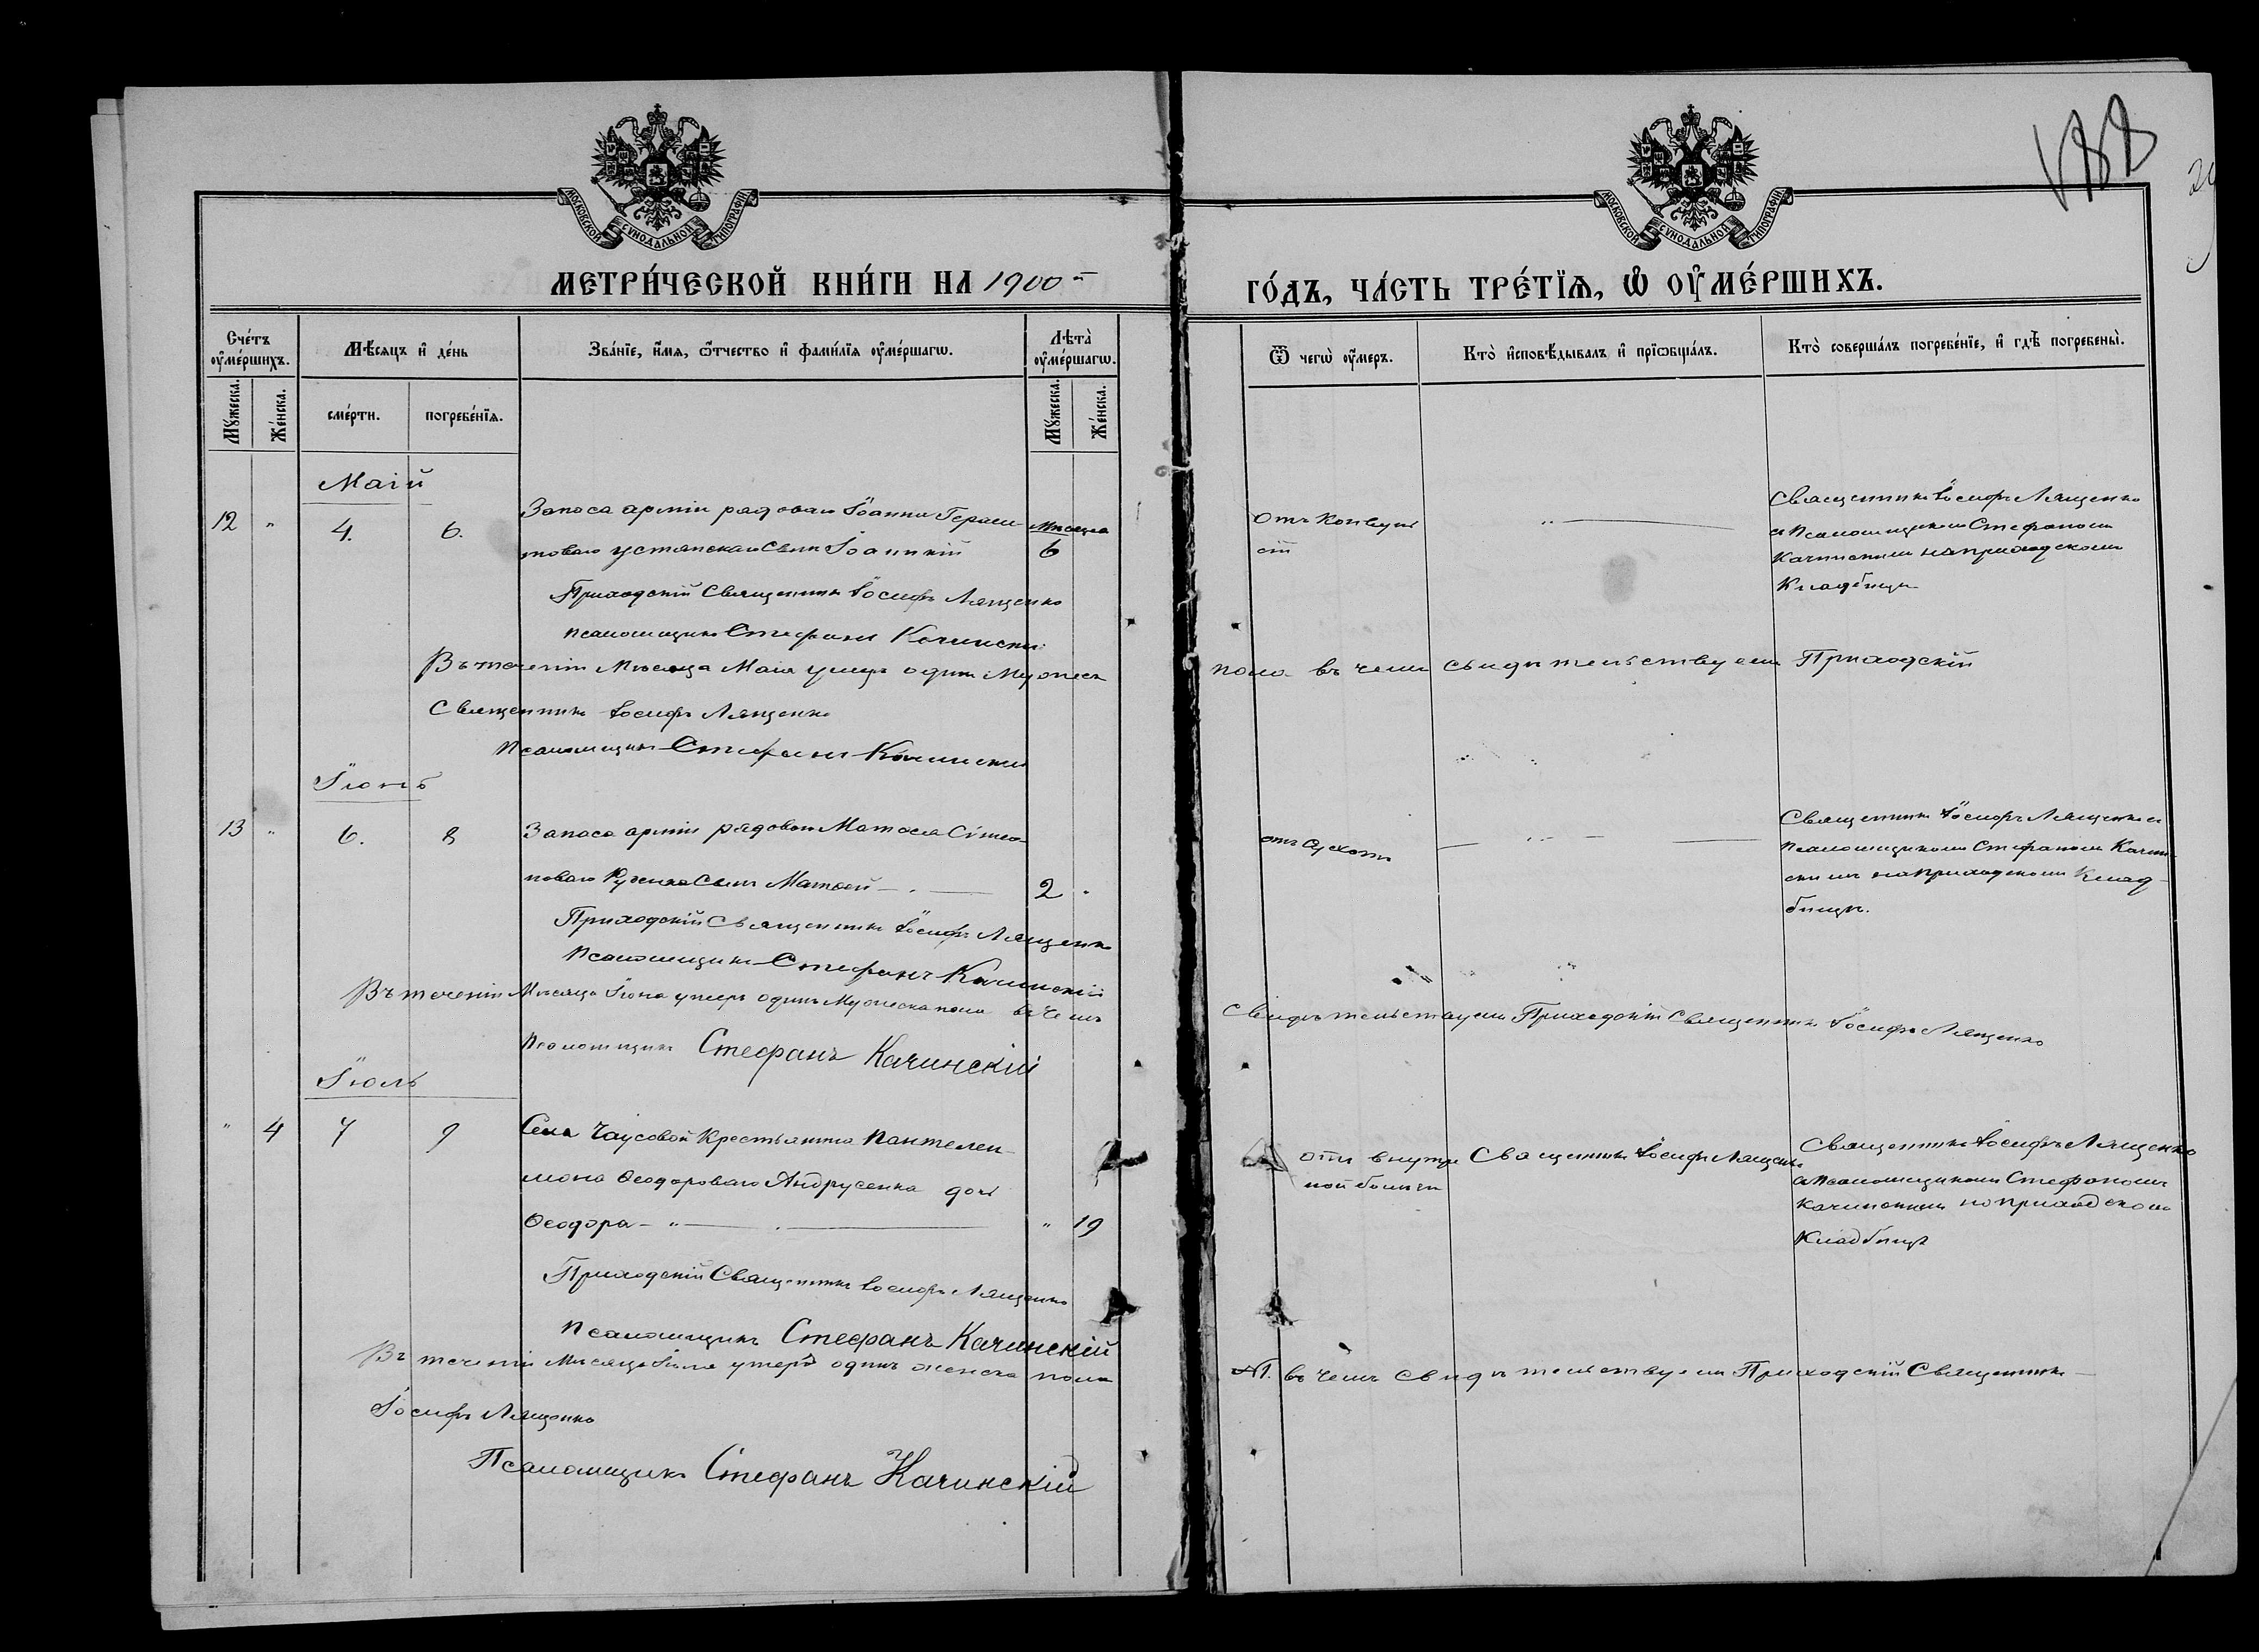 МОСКОВСКОЙ СУНОДАЛЬНОЙ ТИПОГРАФІИ
МОСКОВСКОЙ СУНОДАЛЬНОЙ ТИПОГРАФІИ
188
МЕТРИ́ЧЕСКОЙ КНИ́ГИ НА 1900 й
ГО́ДЪ, ЧА́СТЬ ТРЕ́ТЇѦ, Ѽ ОУ҆МЕ́РШИХЪ.
Сче́тъ оу҆ме́ршихъ.
Мѣ́сяцъ и҆ де́нь
Зва́нїе, и҆́мя, ѻ҆́тчество и҆ фами́лїя оу҆ме́ршагѡ.
Лѣ́та оу҆ме́ршагѡ.
Ѿ чегѡ̀ оу҆́меръ.
Кто̀ и҆сповѣ́дывалъ и҆ прїѡбща́лъ.
Кто̀ соверша́лъ погребе́нїе, и҆ гдѣ̀ погребены̀.
Мꙋ́жеска.
Же́нска.
сме́рти.
погребе́нїя.
Мꙋ́жеска.
Же́нска.
Маій
12 " 4. 6. Запаса арміи рядоваго Іоанна Гераси-
моваго сынъ Іоанникій
Мѣсяца
6
отъ Конвуль
сій
Священникъ Іосифъ Лященко
съ Псаломщикомъ Стефаномъ
Качинскимъ на приходскомъ
Кладбищѣ
Приходскій Священникъ Іосифъ Лященко
Псаломщикъ Стефанъ Качинскій
Въ теченіи Мѣсяца Маія умеръ одинъ Мужеск
пола въ чемъ свидѣтельствуемъ Приходскій
Священникъ Іосифъ Лященко
Псаломщикъ Стефанъ Качинскій
Іюнь
13 " 6. 8 Запаса арміи рядовой Матѳея Сімео-
новаго сынъ Матѳей 2 "
отъ Сухоты
Священникъ Іосифъ Лященко съ
Псаломщикомъ Стефаномъ Качин-
скимъ на приходскомъ Клад-
бищѣ.
Приходскій Священникъ Іосифъ Лященко
Псаломщикъ Стефанъ Качинскій
Въ теченіи Мѣсяца Іюня умеръ одинъ Мужеска пола въ чемъ
свидѣтельствуемъ Приходскій Священникъ Іосифъ Лященко
Псаломщикъ Стефанъ Качинскій
Іюль
" 4 7 9 Села Чаусовой Крестьянина Пантелеи-
мона Ѳеодороваго Андрусенка дочь
Ѳеодора " 19
отъ внутрен
ной болѣзни
Священникъ Іосифъ Лященко
Священникъ Іосифъ Лященко
съ Псаломщикомъ Стефаномъ
Качинскимъ на приходскомъ
Кладбищѣ
Приходскій Священникъ Іосифъ Лященко
Псаломщикъ Стефанъ Качинскій
Въ теченіи Мѣсяца Іюля умеръ одинъ женска пола
№1. въ чемъ свидѣтельствуемъ Приходскій Священникъ
Іосифъ Лященко
Псаломщикъ Стефанъ Качинскій